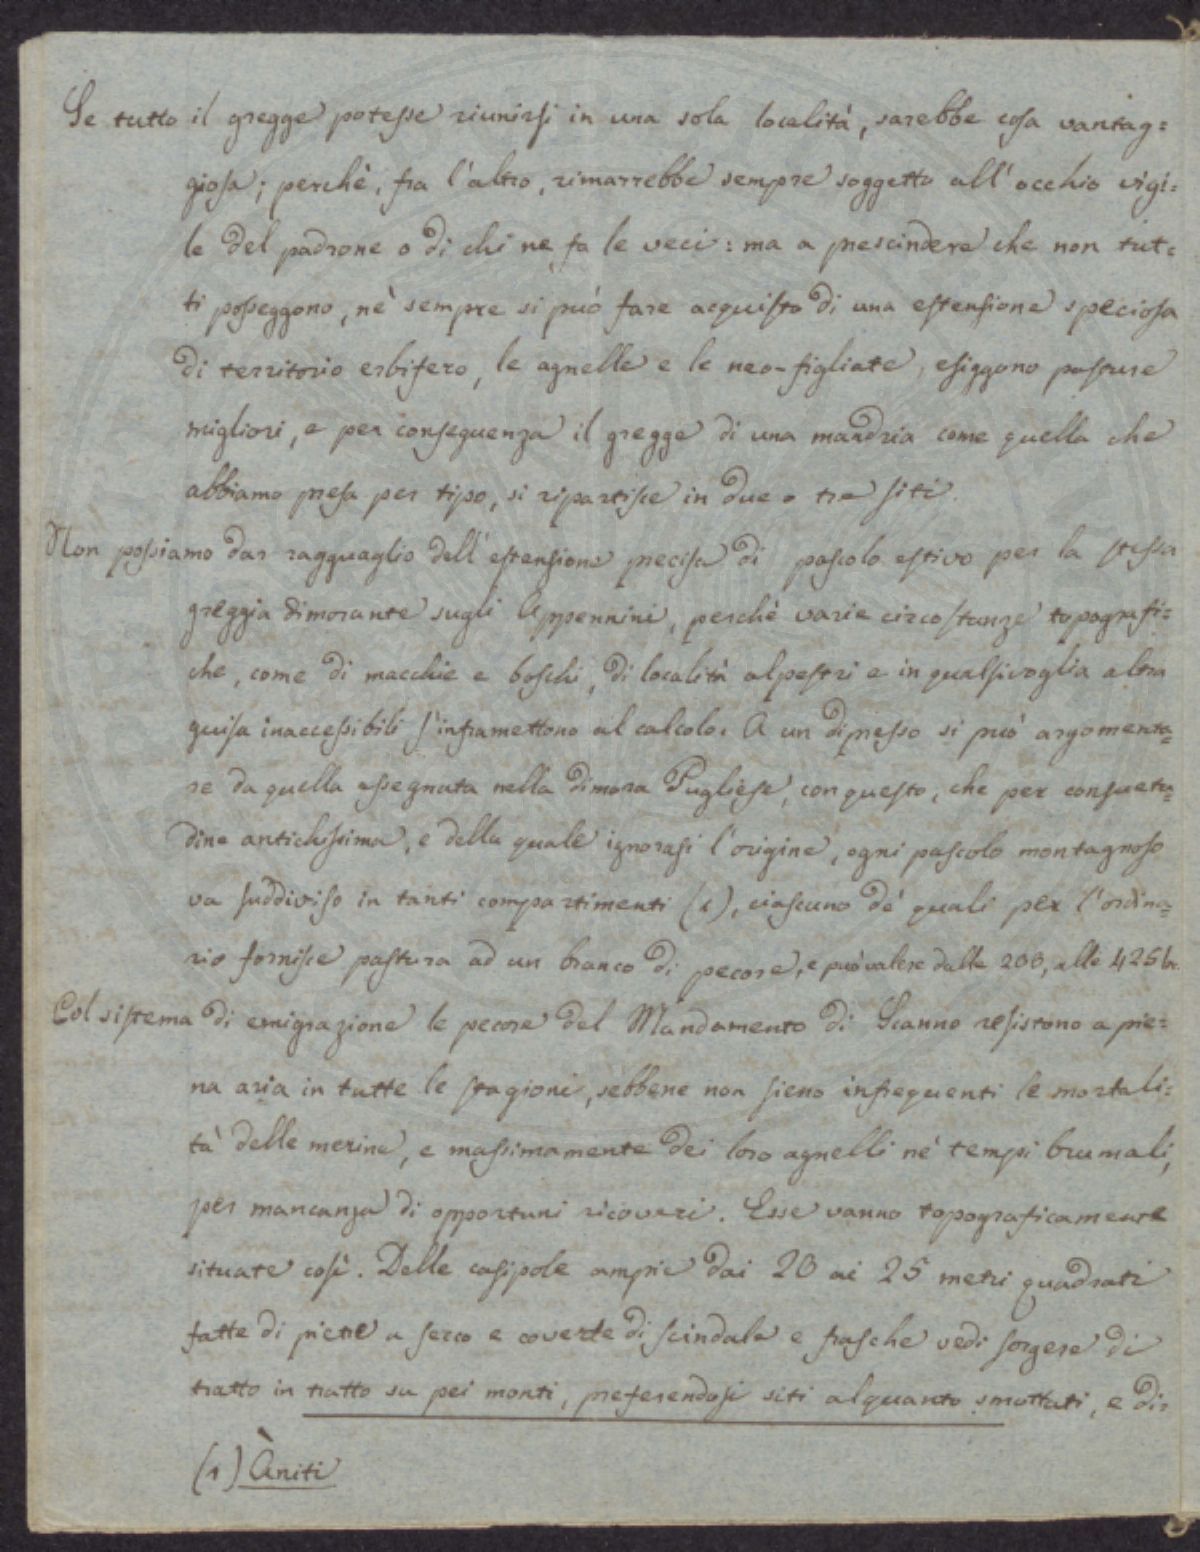 Se tutto il gregge potesse riunirsi in una sola località, sarebbe cosa vantag=
giosa; perchè, fra l'altro, rimarrebbe sempre soggetto all'occhio vigi=
le del padrone o di chi ne fa le veci: ma a prescindere che non tut=
ti posseggono, nè sempre si può fare acquisto di una estensione speciosa
di territorio erbifero, le agnelle e le neo-figliate, esiggono pasture
migliori, e per conseguenza il gregge di una mandria come quella che
abbiamo presa per tipo, si ripartisce in due o tre siti.
Non possiamo dar ragguaglio dell'estensione precisa di pascolo estivo per la stessa
greggia dimorante sugli Appennini, perchè varie circostanze topografi=
che, come di macchie e boschi, di località alpestri e in qualsivoglia altra
guisa inaccessibili s'inframettono al calcolo. A un dipresso si può argomenta=
re da quella assegnata nella dimora Pugliese, con questo, che per consuetu=
dine antichissima, e della quale ignorasi l'origine, ogni pascolo montagnoso
va suddiviso in tanti compartimenti (1), ciascuno de' quali per l'ordina=
rio fornisce pastura ad un branco di pecore, e può valere dalle 200, alle 425 br.
Col sistema di emigrazione le pecore del Mandamento di Scanno resistono a pie=
na aria in tutte le stagioni, sebbene non sieno infrequenti le mortali=
tà delle merine, e massimamente dei loro agnelli ne' tempi brumali,
per mancanza di opportuni ricoveri. Esse vanno topograficamente
situate così. Delle casipole ampie dai 20 ai 25 metri quadrati
fatte di pietre a secco e coverte di scindale e frasche vedi sorgere di
tratto in tratto su pei monti, preferendosi siti alquanto smottati, e di=
(1) Àniti